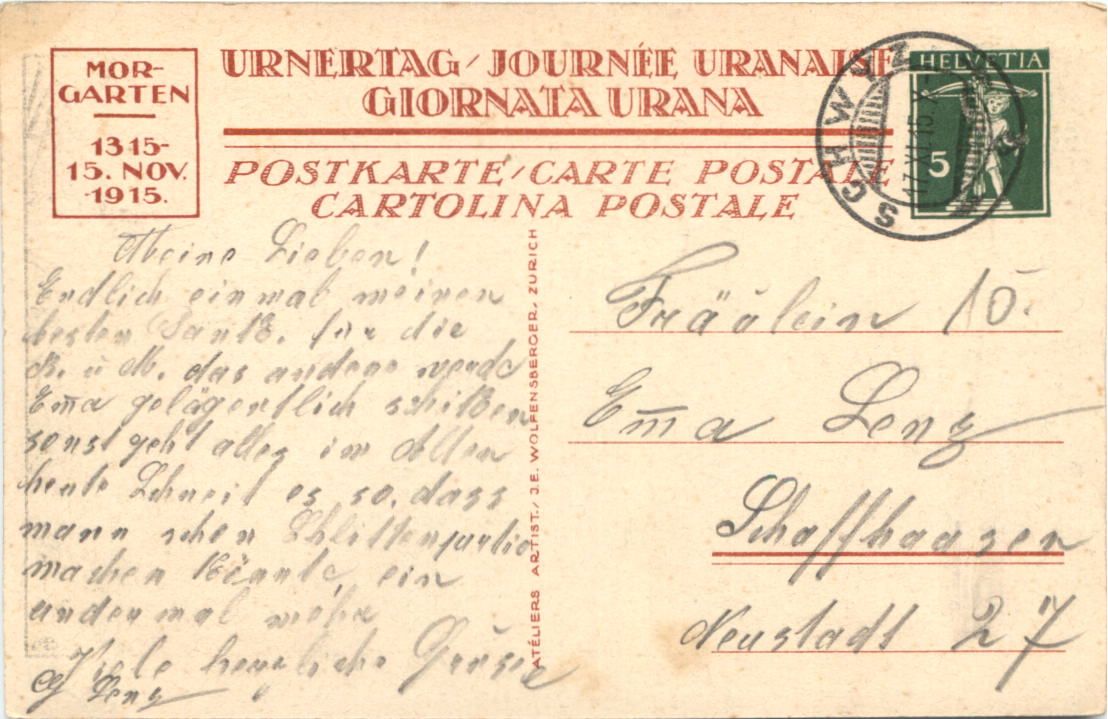 MOR-
GARTEN
1315-
15. NOV.
·1915.
URNERTAG / JOURNÉE URANAISE
GIORNATA URANA
POSTKARTE / CARTE POSTALE
CARTOLINA POSTALE
HELVETIA
5
SCHWYZ
17.XI.15.X
Meine Lieben!
Endlich einmal meinen
besten Dank. für die
K. u M. das andere werde
Em̅a gelägentlich schiken
sonst geht alles im Alten
heute Schneit es so, dass
mann schon Schlittenpartie
machen könnte, ein
ander mal mehr
Viele herzliche Grüsse
Lenz
ATÉLIERS ARTIST. / J.E. WOLFENSBERGER, ZURICH
Fräulein
Em̅a Lenz
Schaffhausen
Neustadt 27